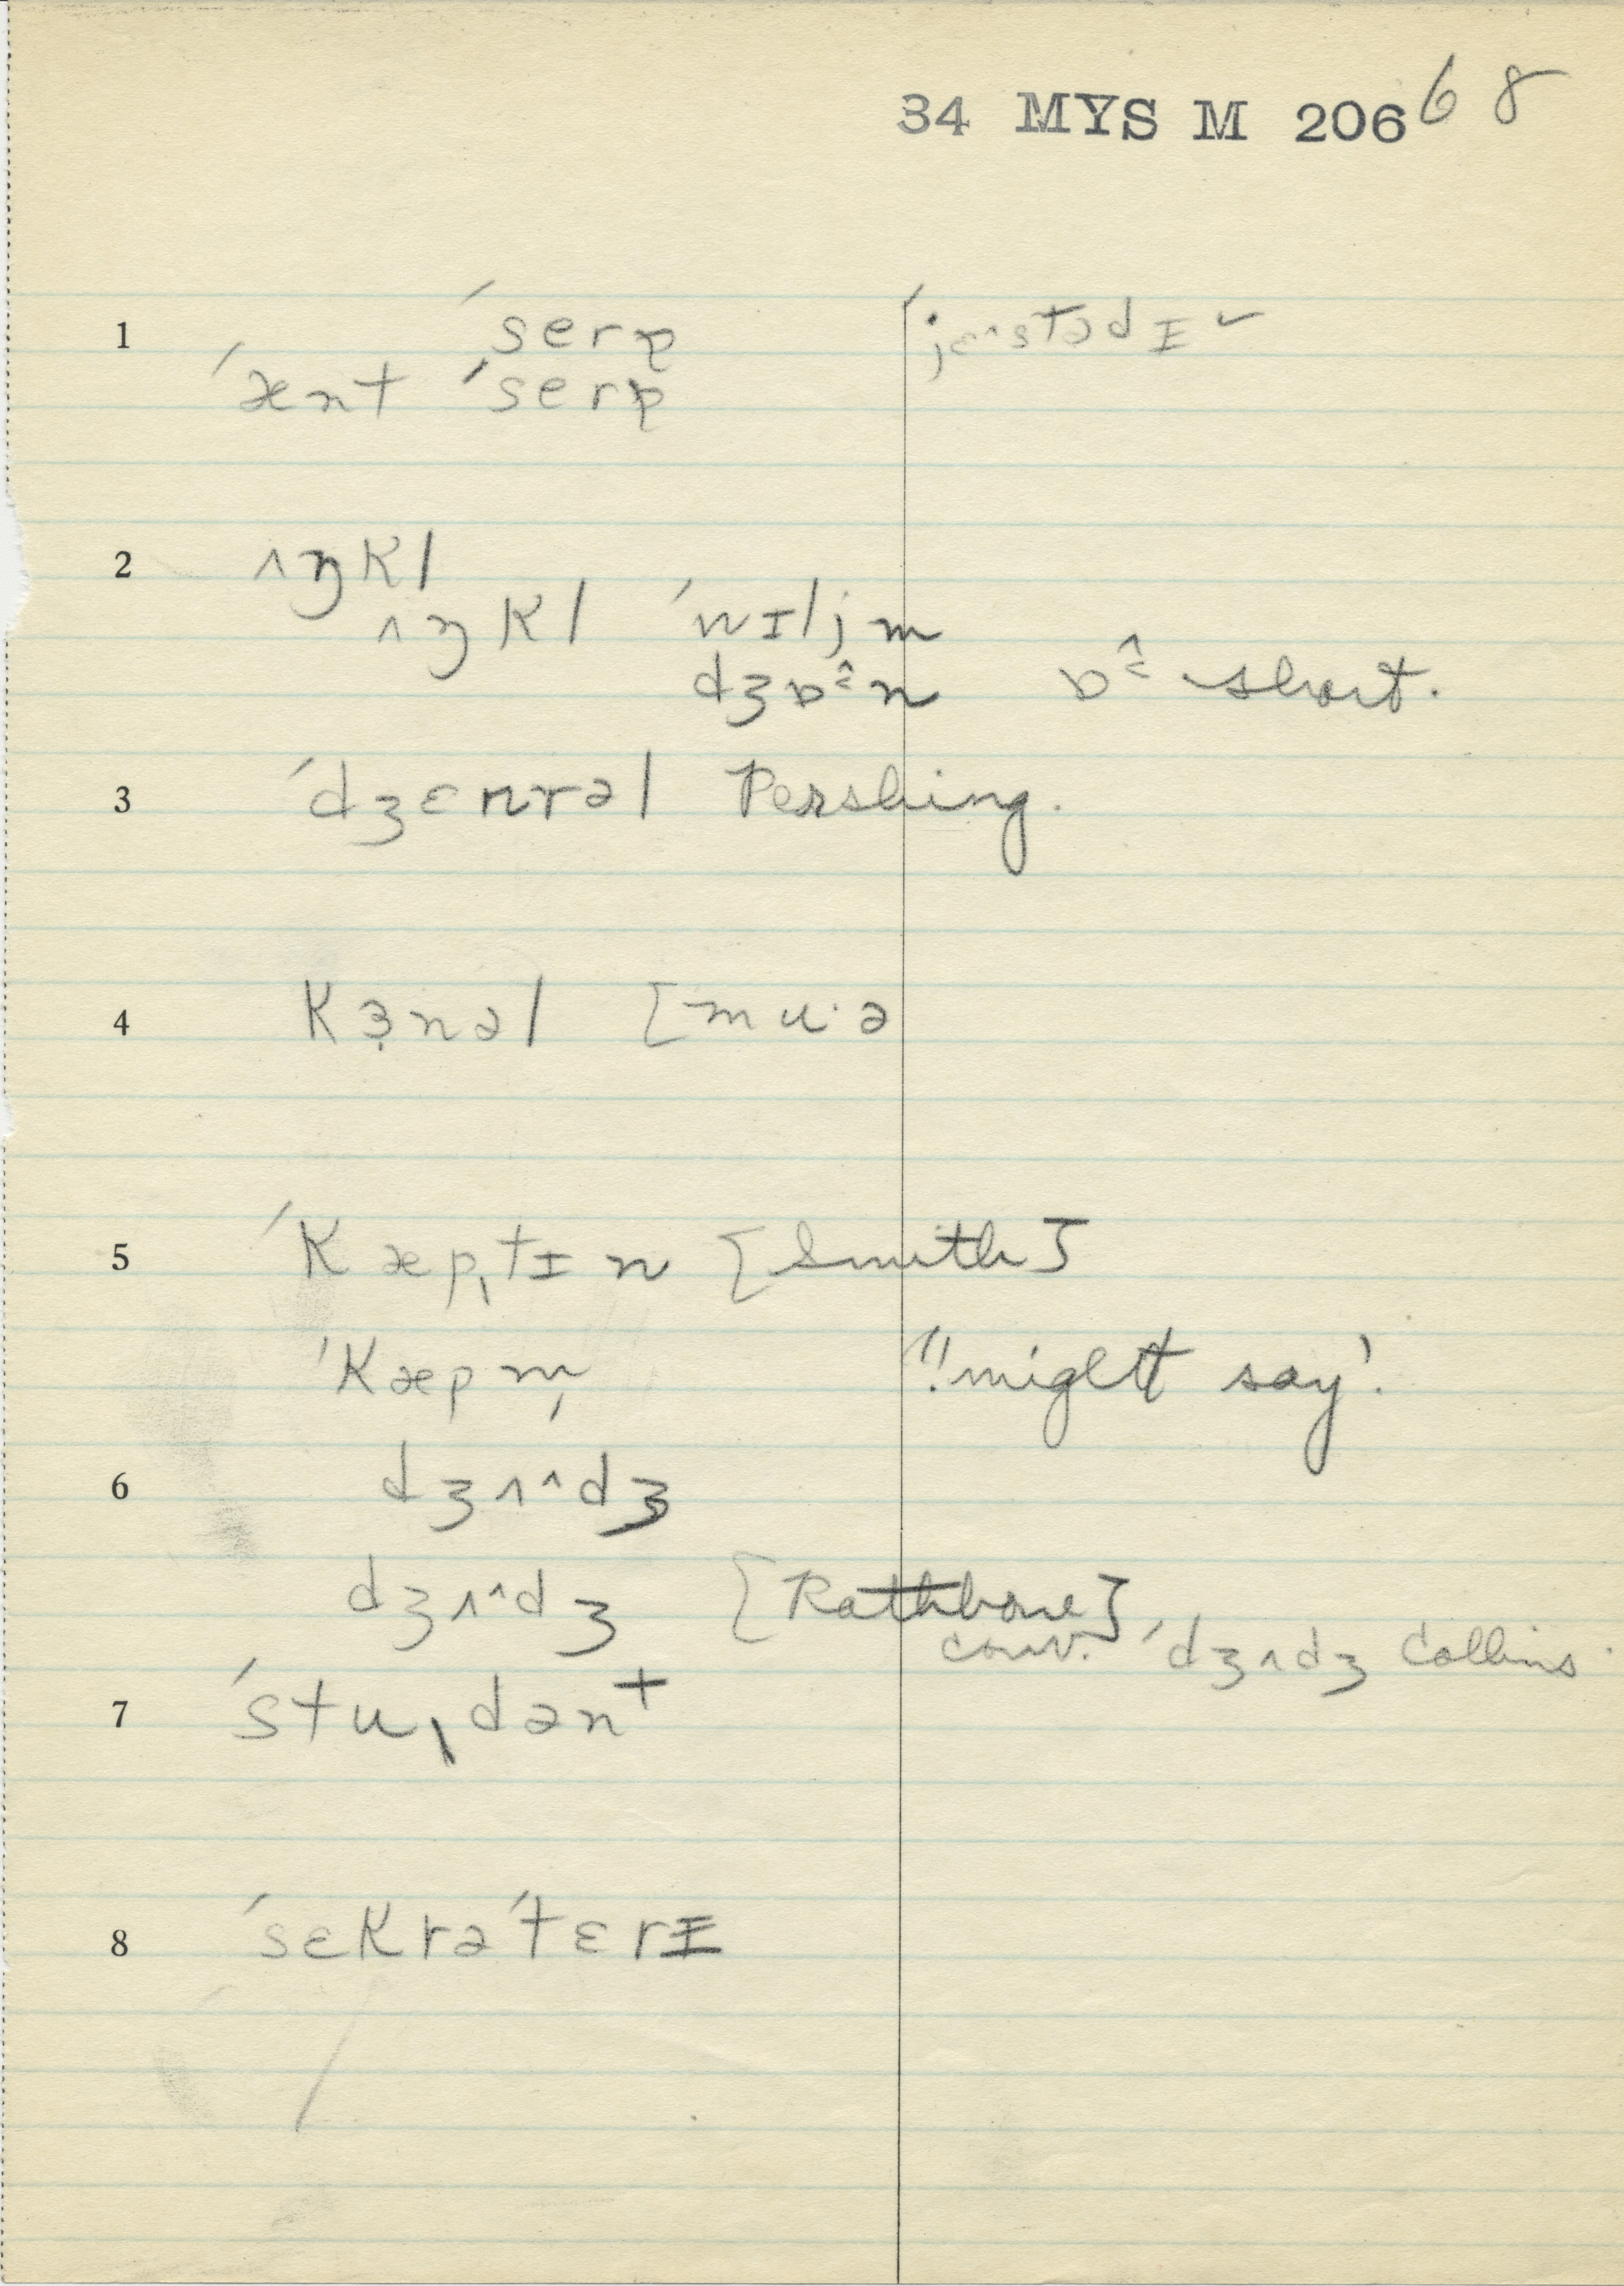 34 MYS M 206 68
1 ˈserə ˈjɛ^stədɪ˅
ˈænt ˈserə
2 ʌŋkl
ʌŋkl ˈwɪljm
dʒɒ^n ɒ^ short.
3 ˈdʒɛnrəl Pershing.
4 kɜ̣nəl [mu·ə
5 ˈkæpˌtɪn [Smith]
ˈkæpm̩ "!might say'.
6 dʒʌ^dʒ
dʒʌ^dʒ [Rathbone]
conv. ˈdʒʌdʒ Collins.
7 ˈstuˌdənt
8 ˈsɛkrəˈtɛrɪ